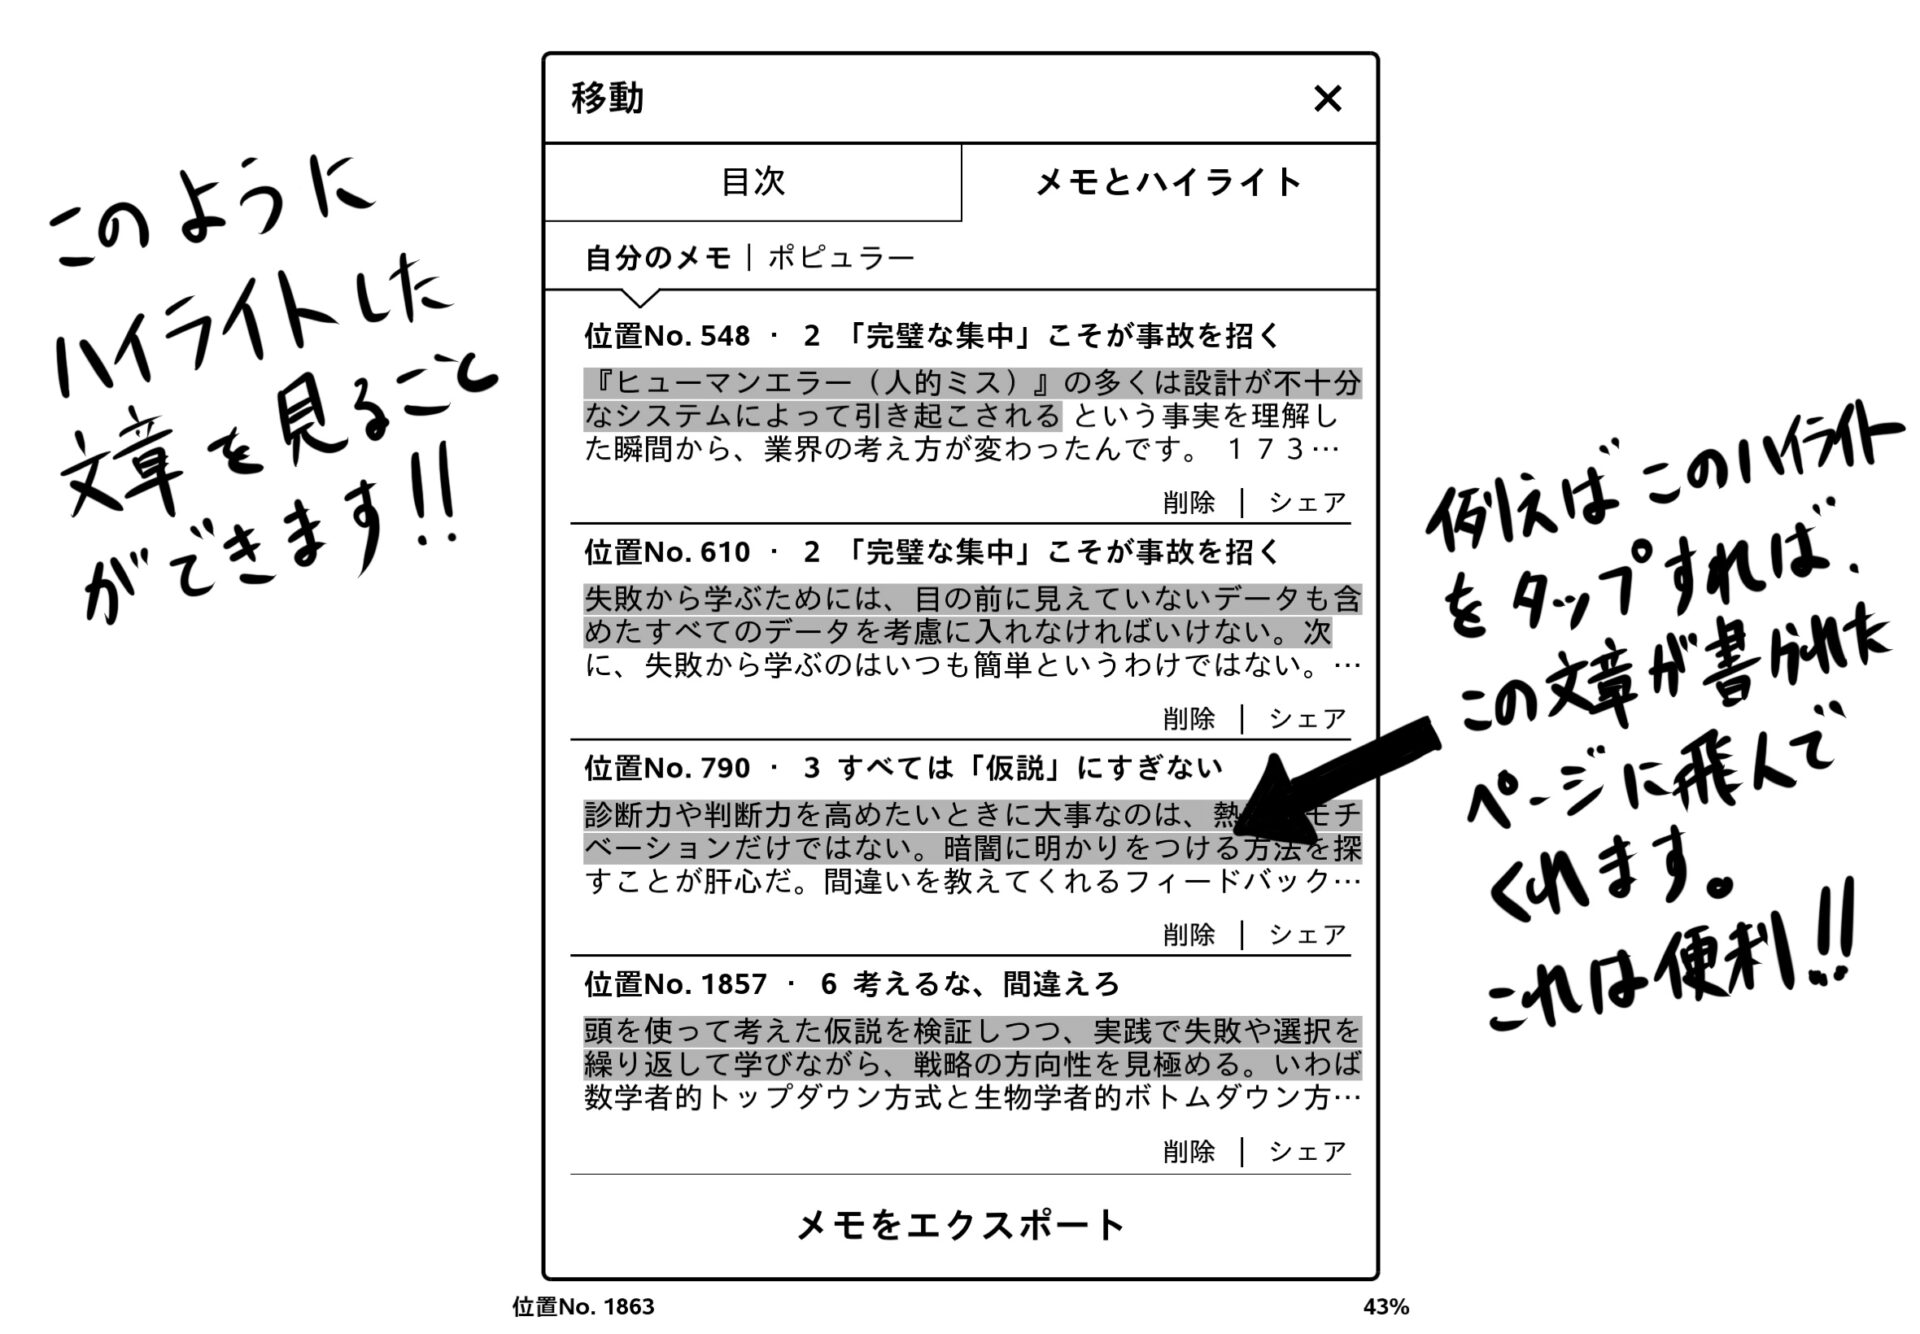 このように
ハイライトした
文章を見ること
ができます!!
移動 ×
目次 メモとハイライト
自分のメモ | ポピュラー
位置No. 548 · 2 「完璧な集中」こそが事故を招く
『ヒューマンエラー（人的ミス）』の多くは設計が不十分
なシステムによって引き起こされる という事実を理解し
た瞬間から、業界の考え方が変わったんです。 １７３…
削除 | シェア
位置No. 610 · 2 「完璧な集中」こそが事故を招く
失敗から学ぶためには、目の前に見えていないデータも含
めたすべてのデータを考慮に入れなければいけない。次
に、失敗から学ぶのはいつも簡単というわけではない。…
削除 | シェア
位置No. 790 · 3 すべては「仮説」にすぎない
診断力や判断力を高めたいときに大事なのは、熱 モチ
ベーションだけではない。暗闇に明かりをつける方法を探
すことが肝心だ。間違いを教えてくれるフィードバック…
削除 | シェア
位置No. 1857 · 6 考えるな、間違えろ
頭を使って考えた仮説を検証しつつ、実践で失敗や選択を
繰り返して学びながら、戦略の方向性を見極める。いわば
数学者的トップダウン方式と生物学者的ボトムダウン方…
削除 | シェア
メモをエクスポート
位置No. 1863 43%
例えばこのハイライト
をタップすれば、
この文章が書られた
ページに飛んで
くれます。
これは便利!!